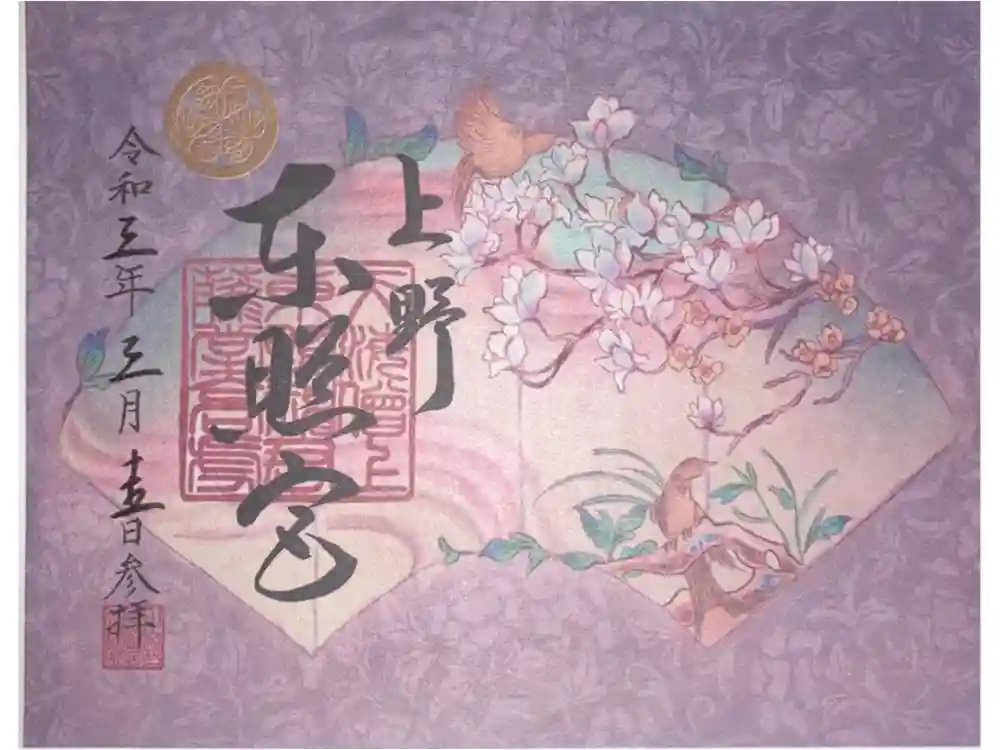 上野
東照宮
令和三年三月十五日参拝